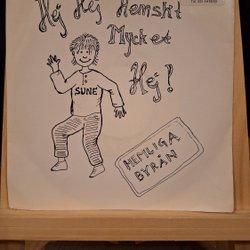 Hej Hej Hemskt
Mycket
Hej!
SUNE
HEMLIGA
BYRÅN